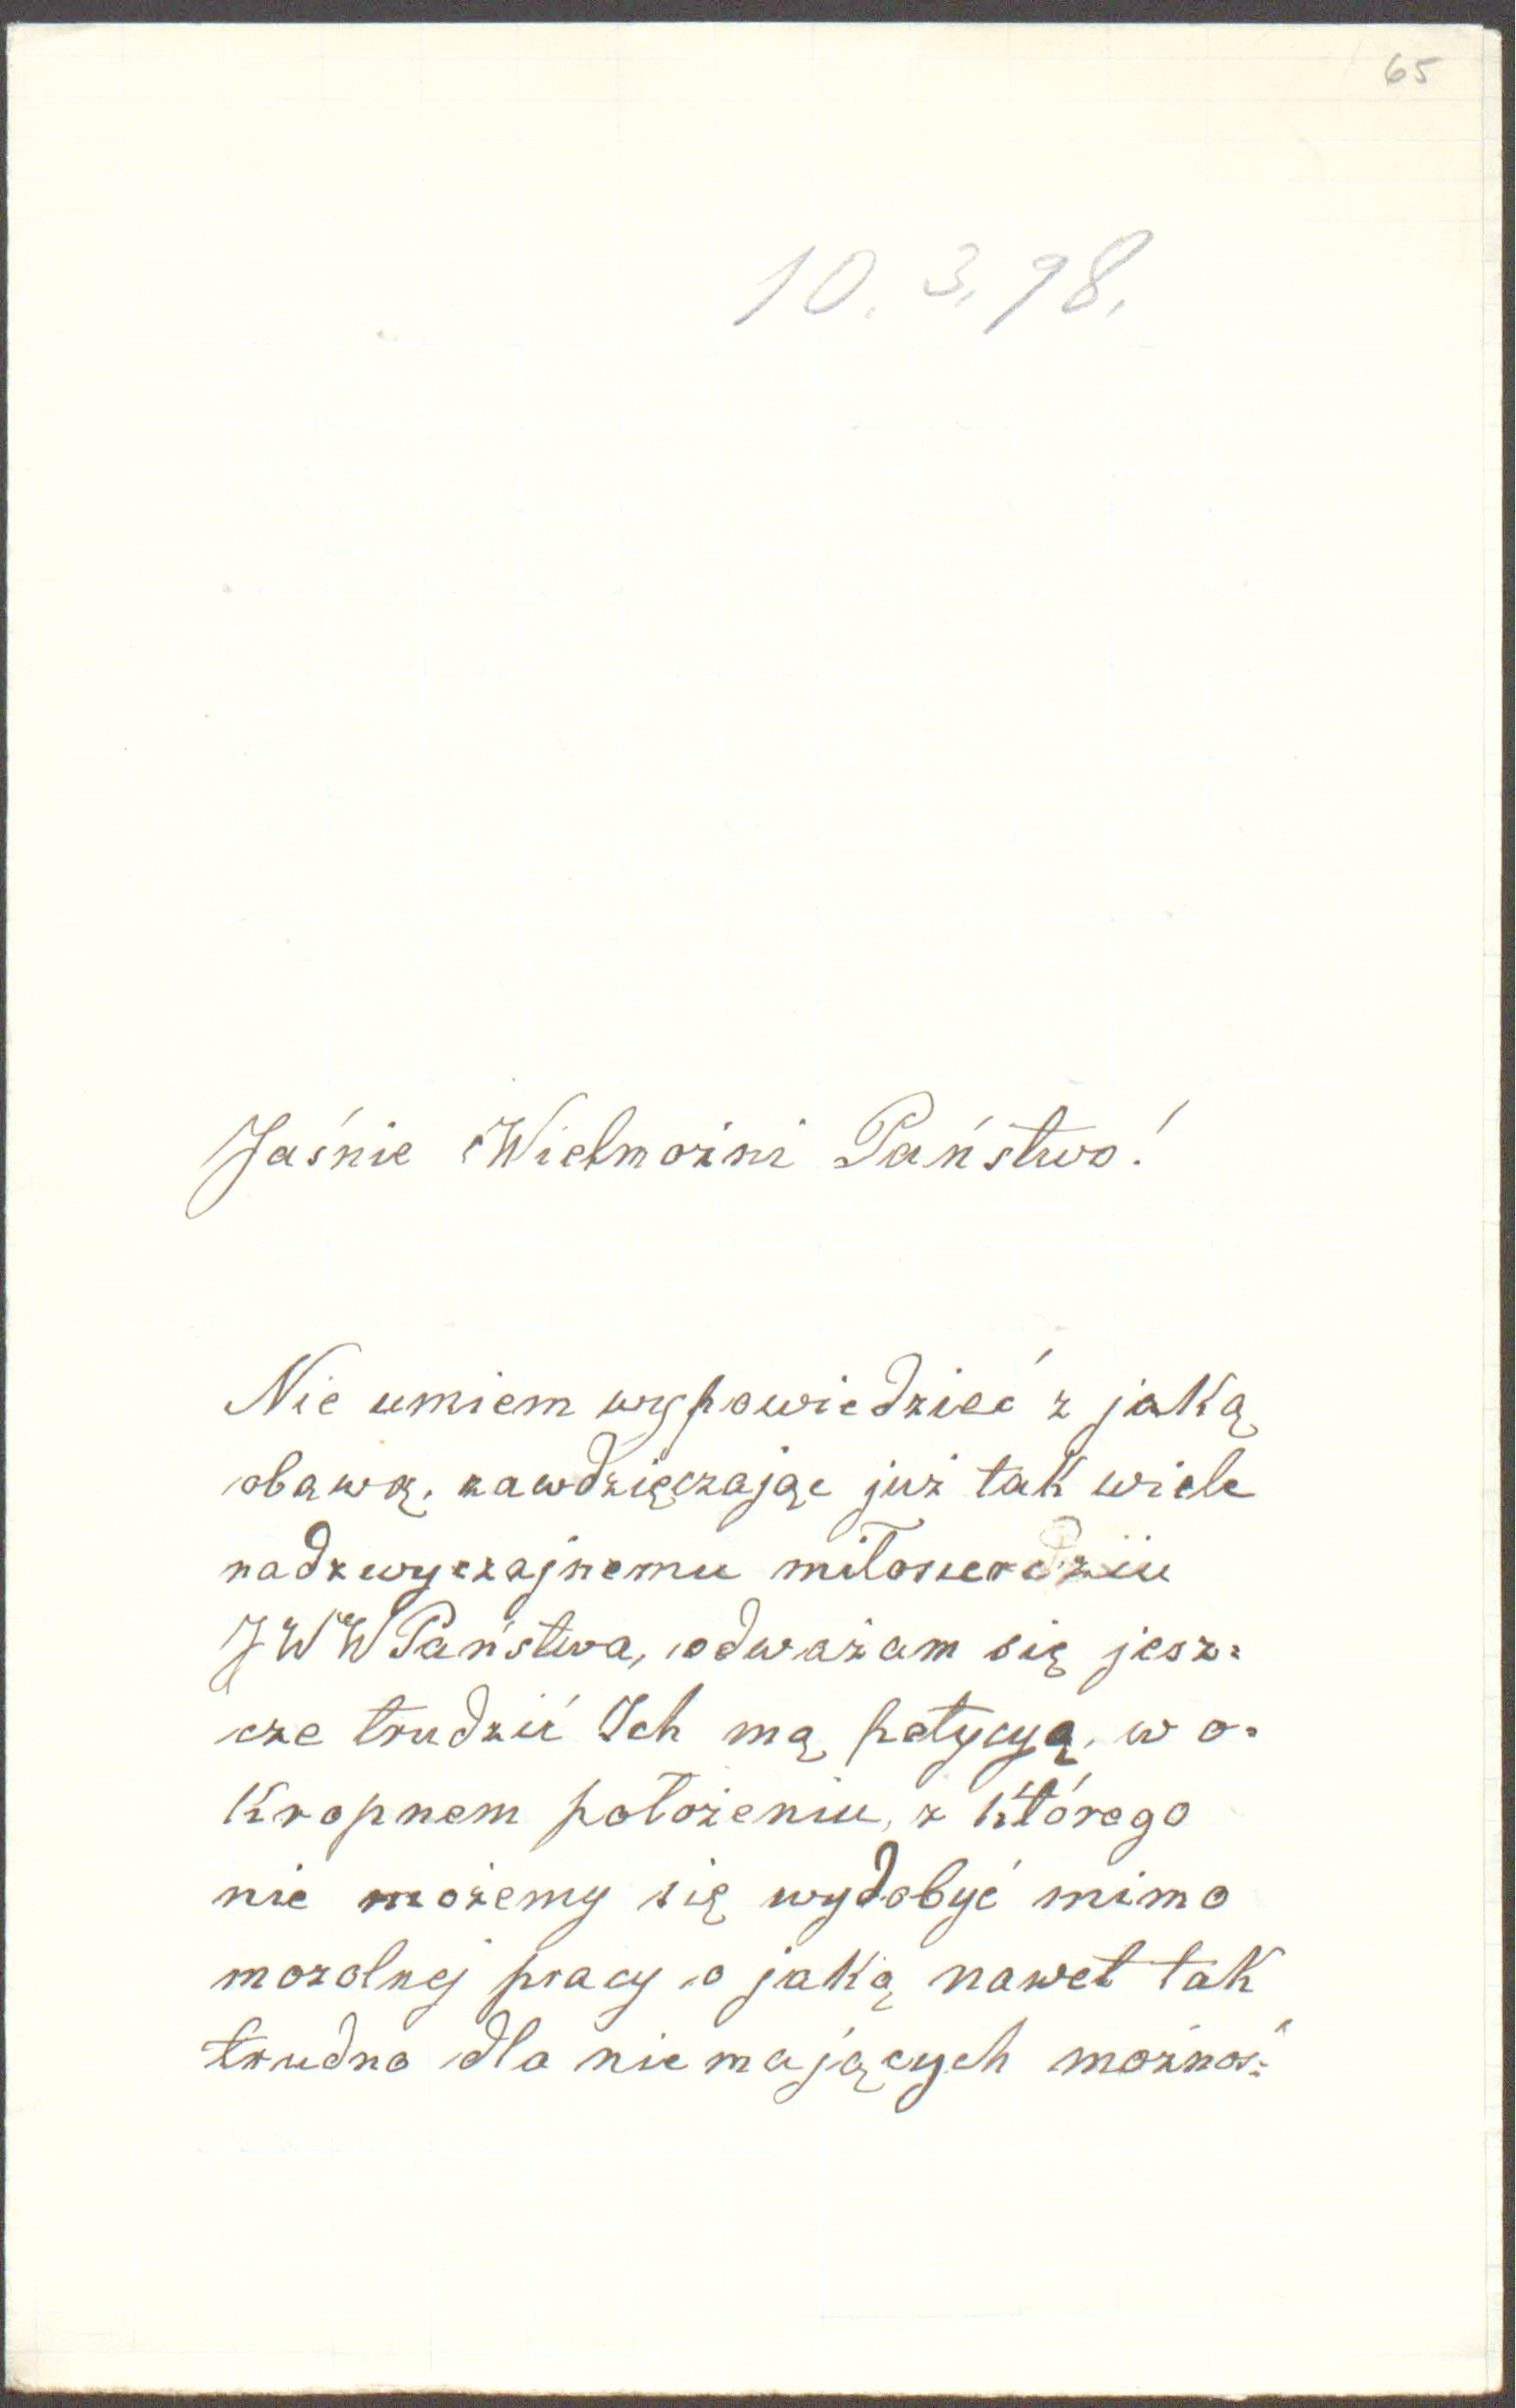 65
10. 3. 98.
Jaśnie Wielmożni Państwo!
Nie umiem wypowiedzieć z jaką
obawą, zawdzięczając już tak wiele
nadzwyczajnemu miłosierdziu
JWWPaństwa, odważam się jesz=
cze trudzić Ich mą petycyą, w o=
kropnem położeniu, z którego
nie możemy się wydobyć mimo
mozolnej pracy o jaką nawet tak
trudno dla nie mających możnoś=